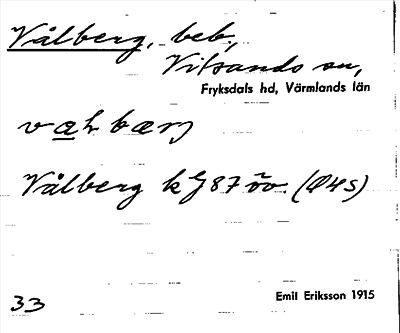 Vålberg, beb.,
Vitsands sn,
Fryksdals hd, Värmlands län
vah bærj
Vålberg kg 87 öv. (Q4S)
33
Emil Eriksson 1915